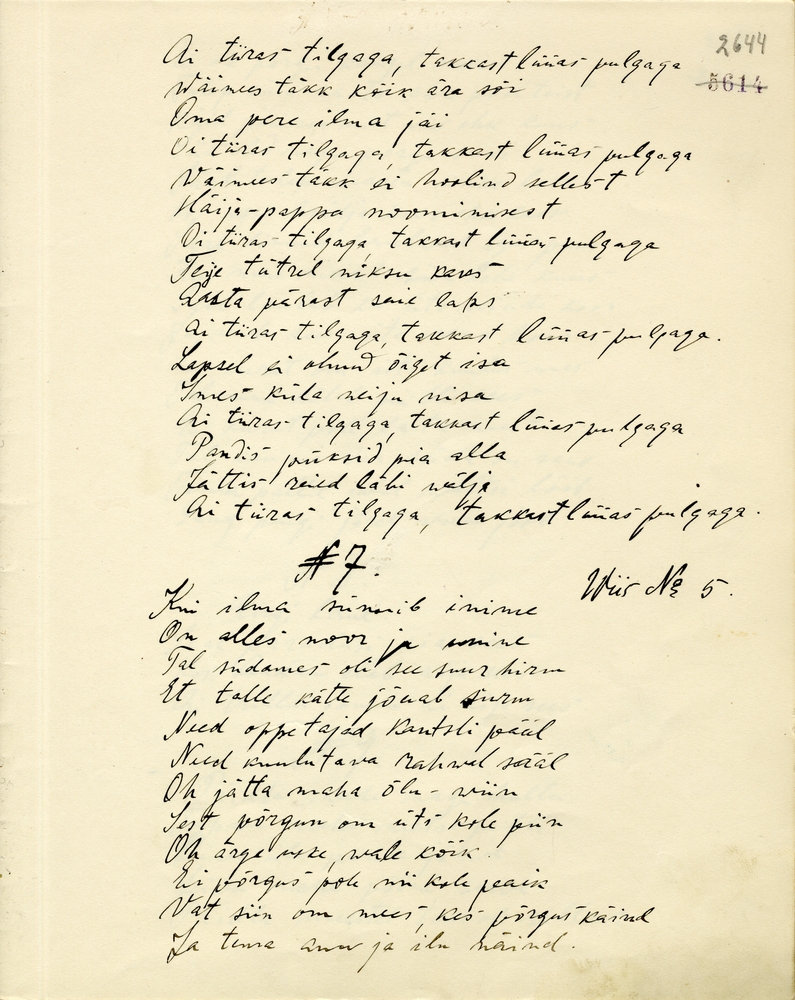 2644
5614
Ai tiiras tilgaga, takkast lüüas pulgaga
Wäimees täkk kõik ära sõi
Oma pere ilma jäi
Oi tiiras tilgaga, takkast lüüas pulgaga
Wäimees täkk ei hoolind sellest
Häija-pappa noomimisest
Oi tiiras tilgaga, takkast lüüas pulgaga
Teije tütrel niksu kaes
pärast saie laps
Ai tiiras tilgaga, takkast lüüas pulgaga.
Lapsel ei olnud õiget isa
Imes küla neiju nisa
Ai tiiras tilgaga, takkast lüüas pulgaga
Pandis püksid pia alla
Jättis reied läbi wälja
Ai tiiras tilgaga, takkast lüüas pulgaga.
№ 7.
Wiis № 5.
Kui ilma sünnib inime
On alles noor ja
Tal südames oli see suur hirm
Et talle kätte jõuab surm
Need oppetajad Kantsli pääl
Need kuulutava rahwal sääl
Oh jätta maha õlu-wiin
Sest põrgun om üts kole piin
Oh ärge uske, wale kõik.
Ei põrgus pole nii kole peaik
Vat siin om mees, kes põrgus käind
Ja tema auu ja ilu näind.